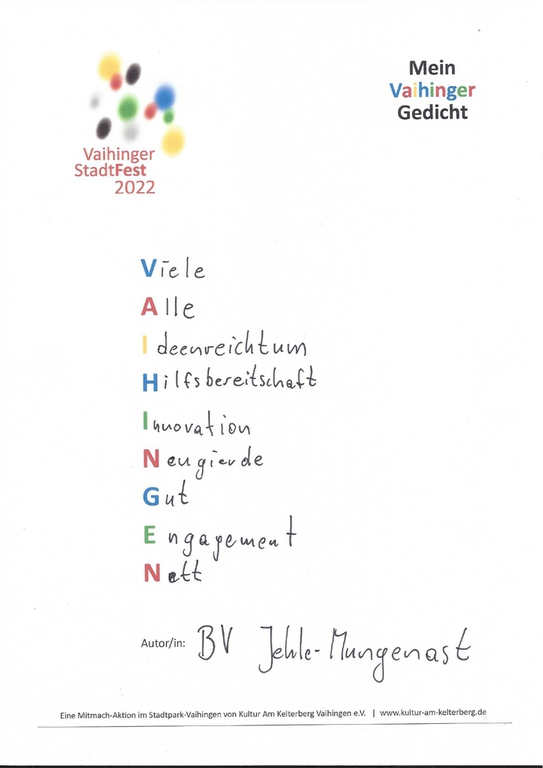 Mein
Vaihinger
Gedicht
Vaihinger
StadtFest
2022
Viele
Alle
Ideenreichtum
Hilfsbereitschaft
Innovation
Neugierde
Gut
Engagement
Nett
Autor/in: BV Jehle-Mungenast
Eine Mitmach-Aktion im Stadtpark-Vaihingen von Kultur Am Kelterberg Vaihingen e.V. | www.kultur-am-kelterberg.de